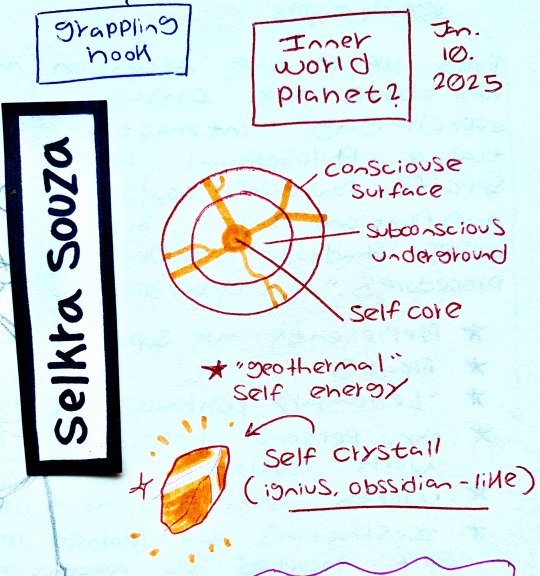 grappling
hook
Inner
world
planet?
Jan.
10.
2025
Selkta Souza
consciouse
surface
subconscious
underground
Self core
★ "geothermal"
Self energy
Self crystall
(ignius, obssidian-like)